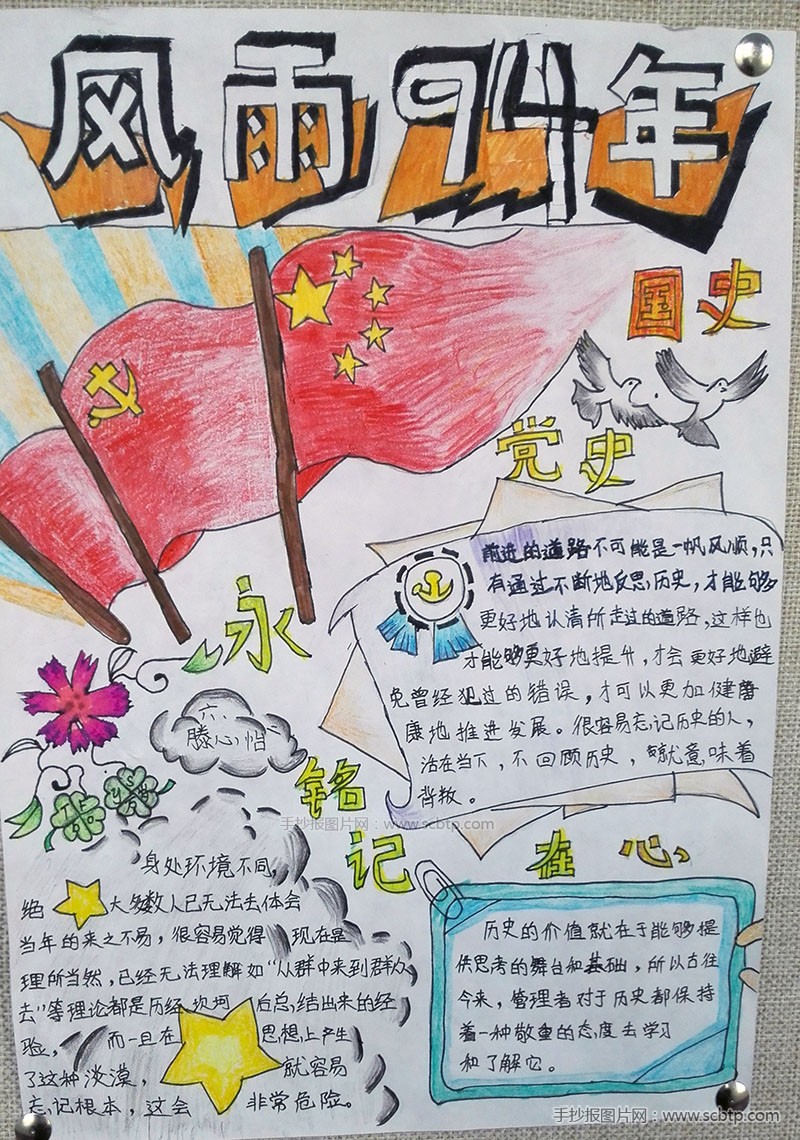 风雨94年
国史
党史
前进的道路不可能是一帆风顺，只
有通过不断地反思历史，才能够
更好地认清所走过的道路，这样也
才能够更好地提升，才会更好地避
免曾经犯过的错误，才可以更加健
康地推进发展。很容易忘记历史的人，
活在当下，不回顾历史，就意味着
背叛。
永
铭
记
在心
六
滕心怡
手抄报图片网：www.scbtp.com
身处环境不同，
绝大多数人已无法去体会
当年的来之不易，很容易觉得现在是
理所当然，已经无法理解如“从群中来到群众
去”等理论都是历经坎坷后总结出来的经
验，而一旦在思想上产生
了这种淡漠，就容易
忘记根本，这会非常危险。
历史的价值就在于能够提
供思考的舞台和基础，所以古往
今来，管理者对于历史都保持
着一种敬重的态度去学习
和了解它。
手抄报图片网：www.scbtp.com